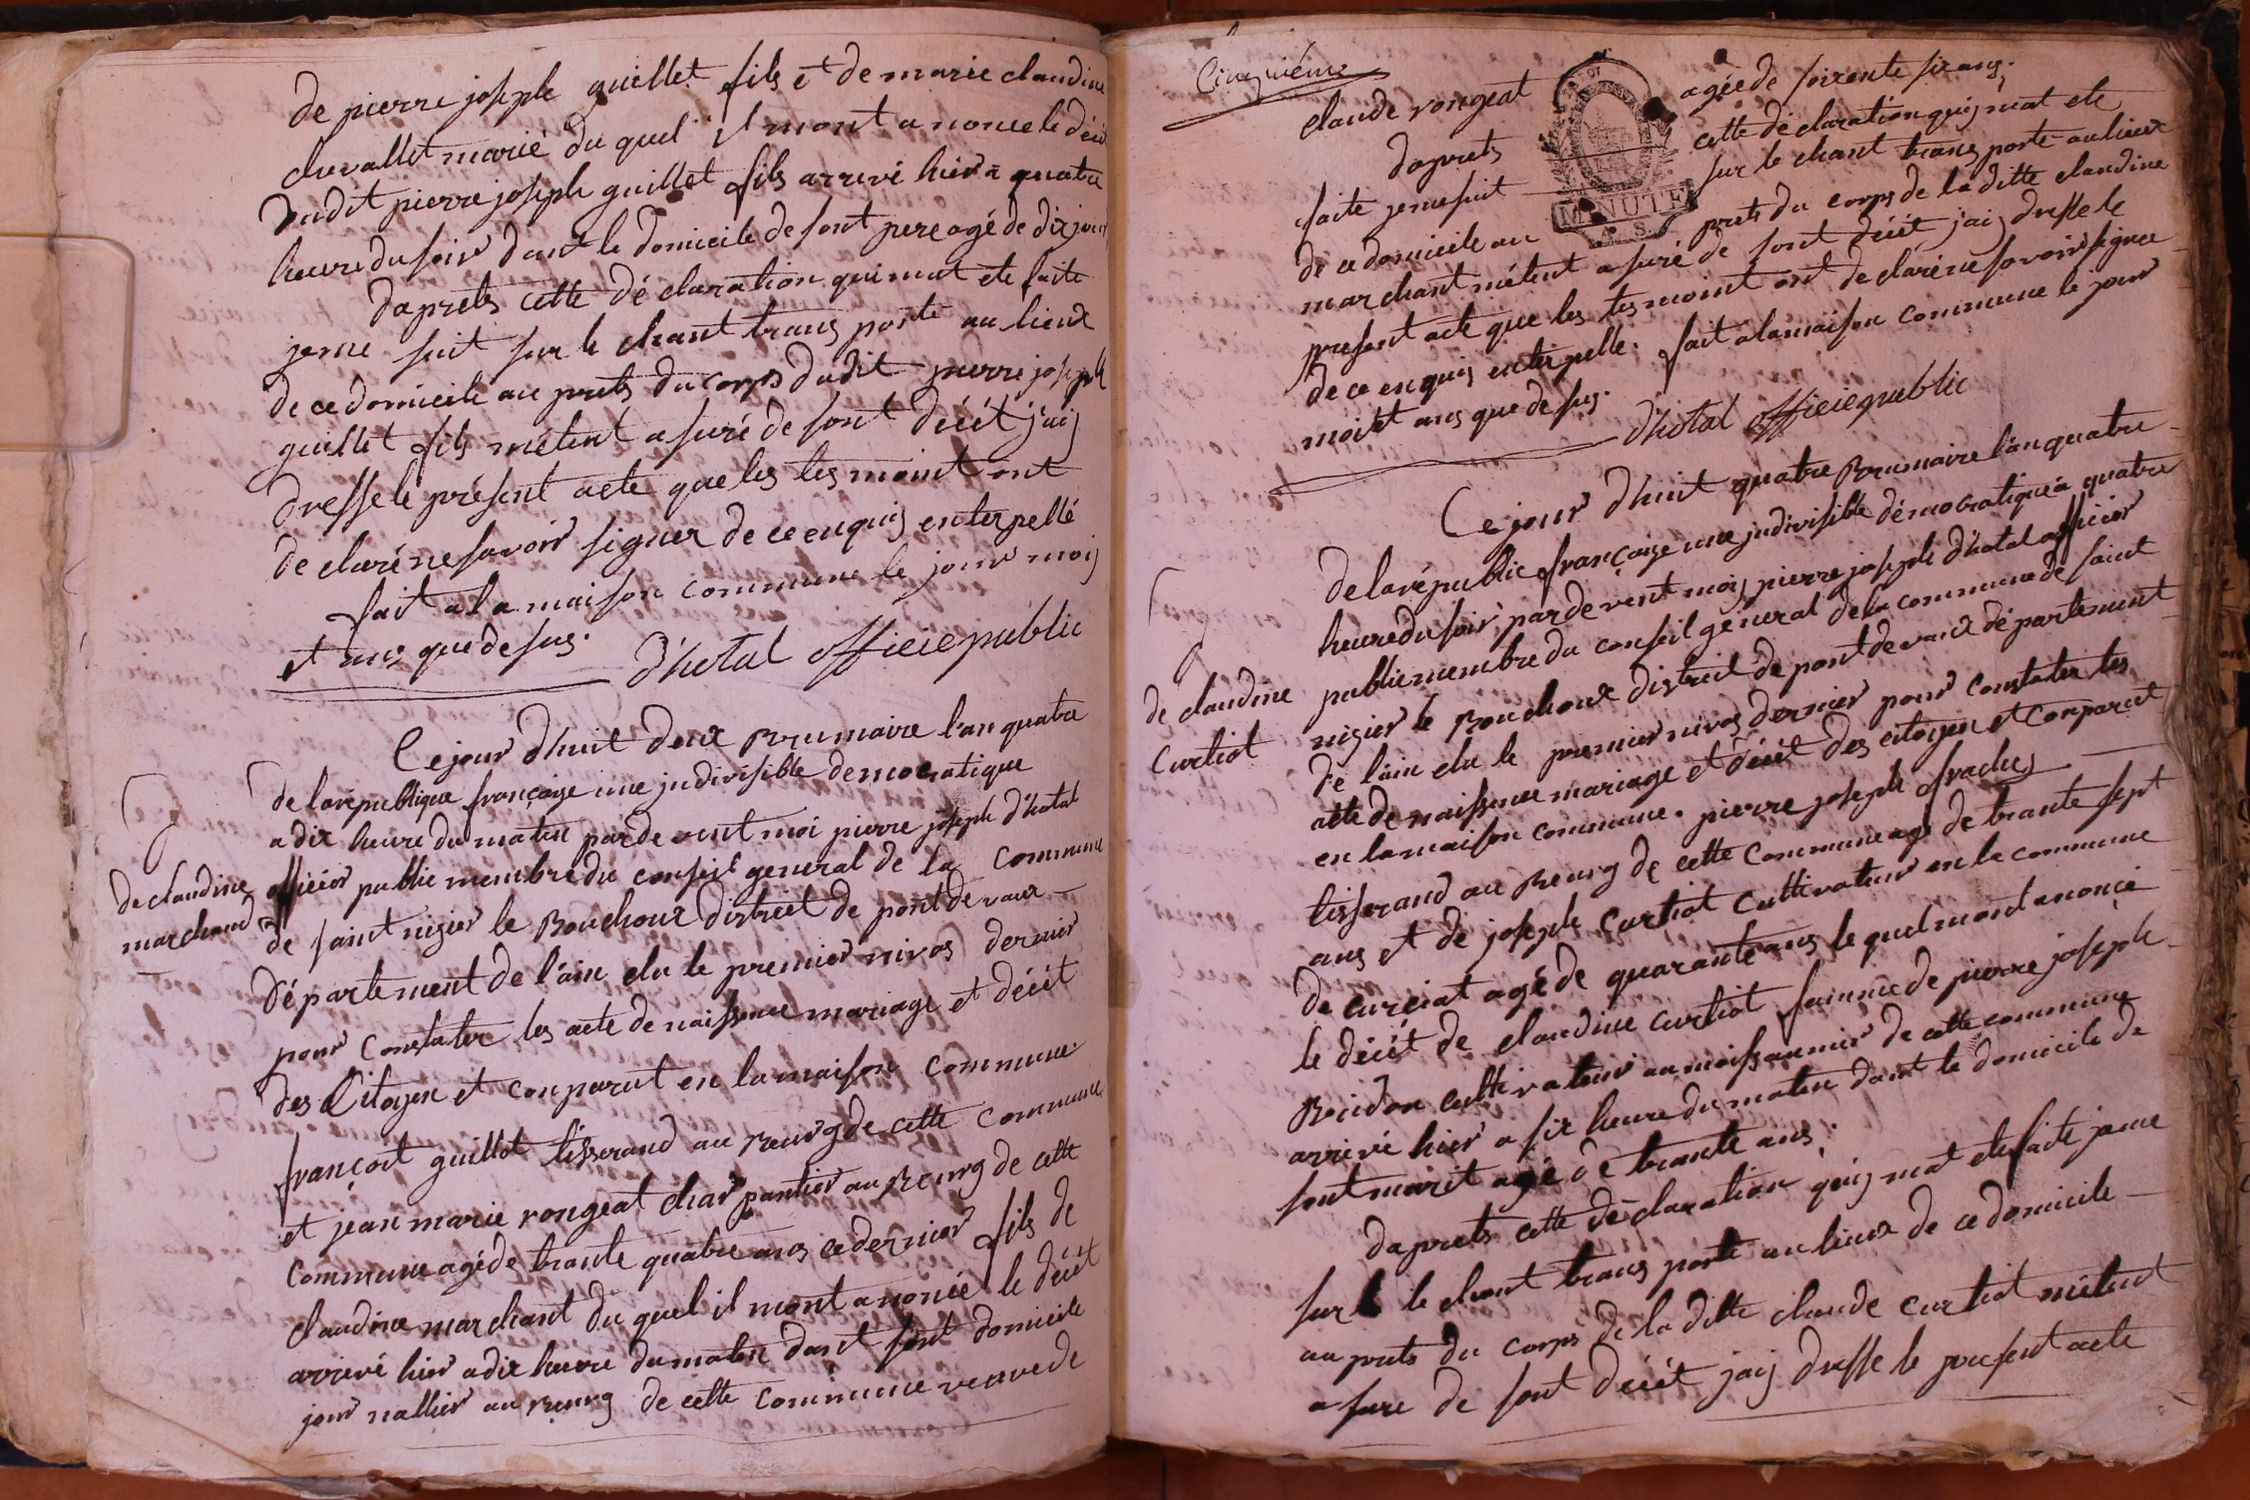 de pierre joseph guillet fils et de marie claudine
chevallet marié du quel il mont a nonce le décé
dudit pierre joseph guillet fils arrivé hier a quatre
heure du soir dant le domicile de sont pere agé de dix jours
daprets cette dé claration qui mut ete faite
jeme suit sur le chant trans porté au lieux
de ce domicile au prets du corps dudit pierre joseph
guillet fils métent a suré de sont décét j'aij
dresse le présent acte que les tes moint ont
de claré ne savoir signer de ce enquis enterpellé
fait a la maison commune le jour mois
et ans que desus.
d'hotal officie public
Ce jour d'huit deux Brumaire l'an quatre
de larépublique françoise une jndivisible democratique
a dix heure du matin par de vent moi pierre joseph d'hotal
de claudine
marchand
officier public membre du conseil general de la commune
de saint nizier le Bouchoux district de pont de vaux
département de l'ain elu le premier nivos dernier
pour Constater les acte de naissance mariage et décét
des Citoyen et conparut en la maison commune
françoit guillot tisserand au Bourg de cette commune
et jean marie rongeat charpantier au Bourg de cette
commune agé de trante quatre ans ce dernier fils de
claudine marchant du quel il mont anoncé le decét
arrivé hier a dix heure du matin dant sont domicile
jour nallier au Bourg de cette commune veuve de
Cinquiéme
claude rongeat agée de soixente six ans.
daprets cette dé claration quij mat ete
faite jeme suit sur le chant trans porte au lieux
de ce domicile au prets du corps de la ditte claudine
MINUTE
marchant métent a suré de sont décét j'aij dresse le
present acte que les tes moint ont de claré ne savoir signer
de ce enquis enterpellé. fait a la maison commune le jour
mois et ans que desus.
d'hotal officie public
Ce jour d'huit quatre Brumaire l'an quatre
de la république françoise une jndivisible démocratique a quatre
heure du soir par de vent moij pierre joseph d'hotal officier
de claudine
Curtiot
public membre du conseil géneral de la commune de saint
nizier le Bouchoux district de pont de vaux département
de l'ain elu le premier nivos dernier pour constater les
acte de naissance mariage et décét des citoyen et comparut
en la maison commune. pierre joseph frachez
tisserand au Bourg de cette commune agé de trante sept
ans et de joseph Curtiot Cultivateur en la commune
de curciat agé de quarante ans le quel mont anoncé
le décét de claudine Curtiot famme de pierre joseph
Boidon cultivateur au moissonnier de cette commune
arrivé hier a six heure du matin dant le domicile de
sont marit agé de trante ans.
daprets cette dé claration quij mat ete faite jeme
sur le chant trans porte au lieux de ce domicile
au prets du corps de la ditte claude Curtiot métent
a sure de sont décét jaij dresse le present acte